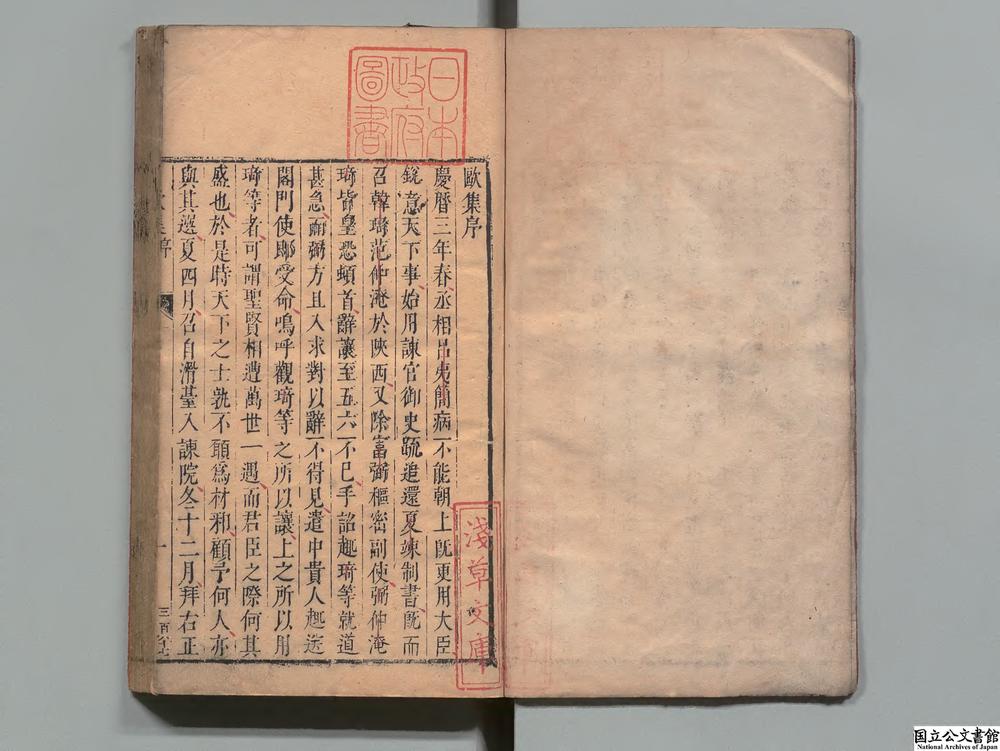 日本
政府
圖書
歐集序
慶曆三年春丞相呂夷簡病不能朝上既更用大臣
銳意天下事始用諫官御史疏追還夏竦制書既而
召韓琦范仲淹於陝西又除富弼樞密副使弼仲淹
琦皆皇恐頓首辭讓至五六不已手詔趣琦等就道
甚急而弼方且入求對以辭不得見遣中貴人趣送
閤門使卽受命嗚呼觀琦等之所以讓上之所以用
琦等者可謂聖賢相遭萬世一遇而君臣之際何其
盛也於是時天下之士孰不願爲材邪顧予何人亦
與其選夏四月召自滑臺入諫院冬十二月拜右正
序
一
三百
淺草文庫
国立公文書館
National Archives of Japan